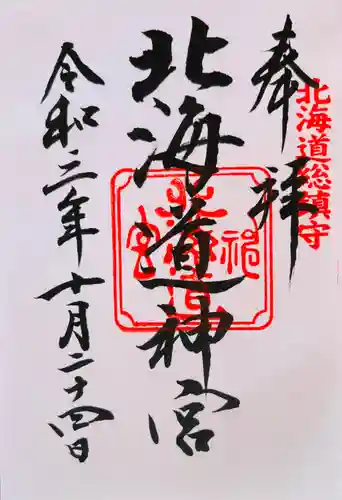 奉拝
北海道総鎮守
北海道神宮
令和三年十月二十四日